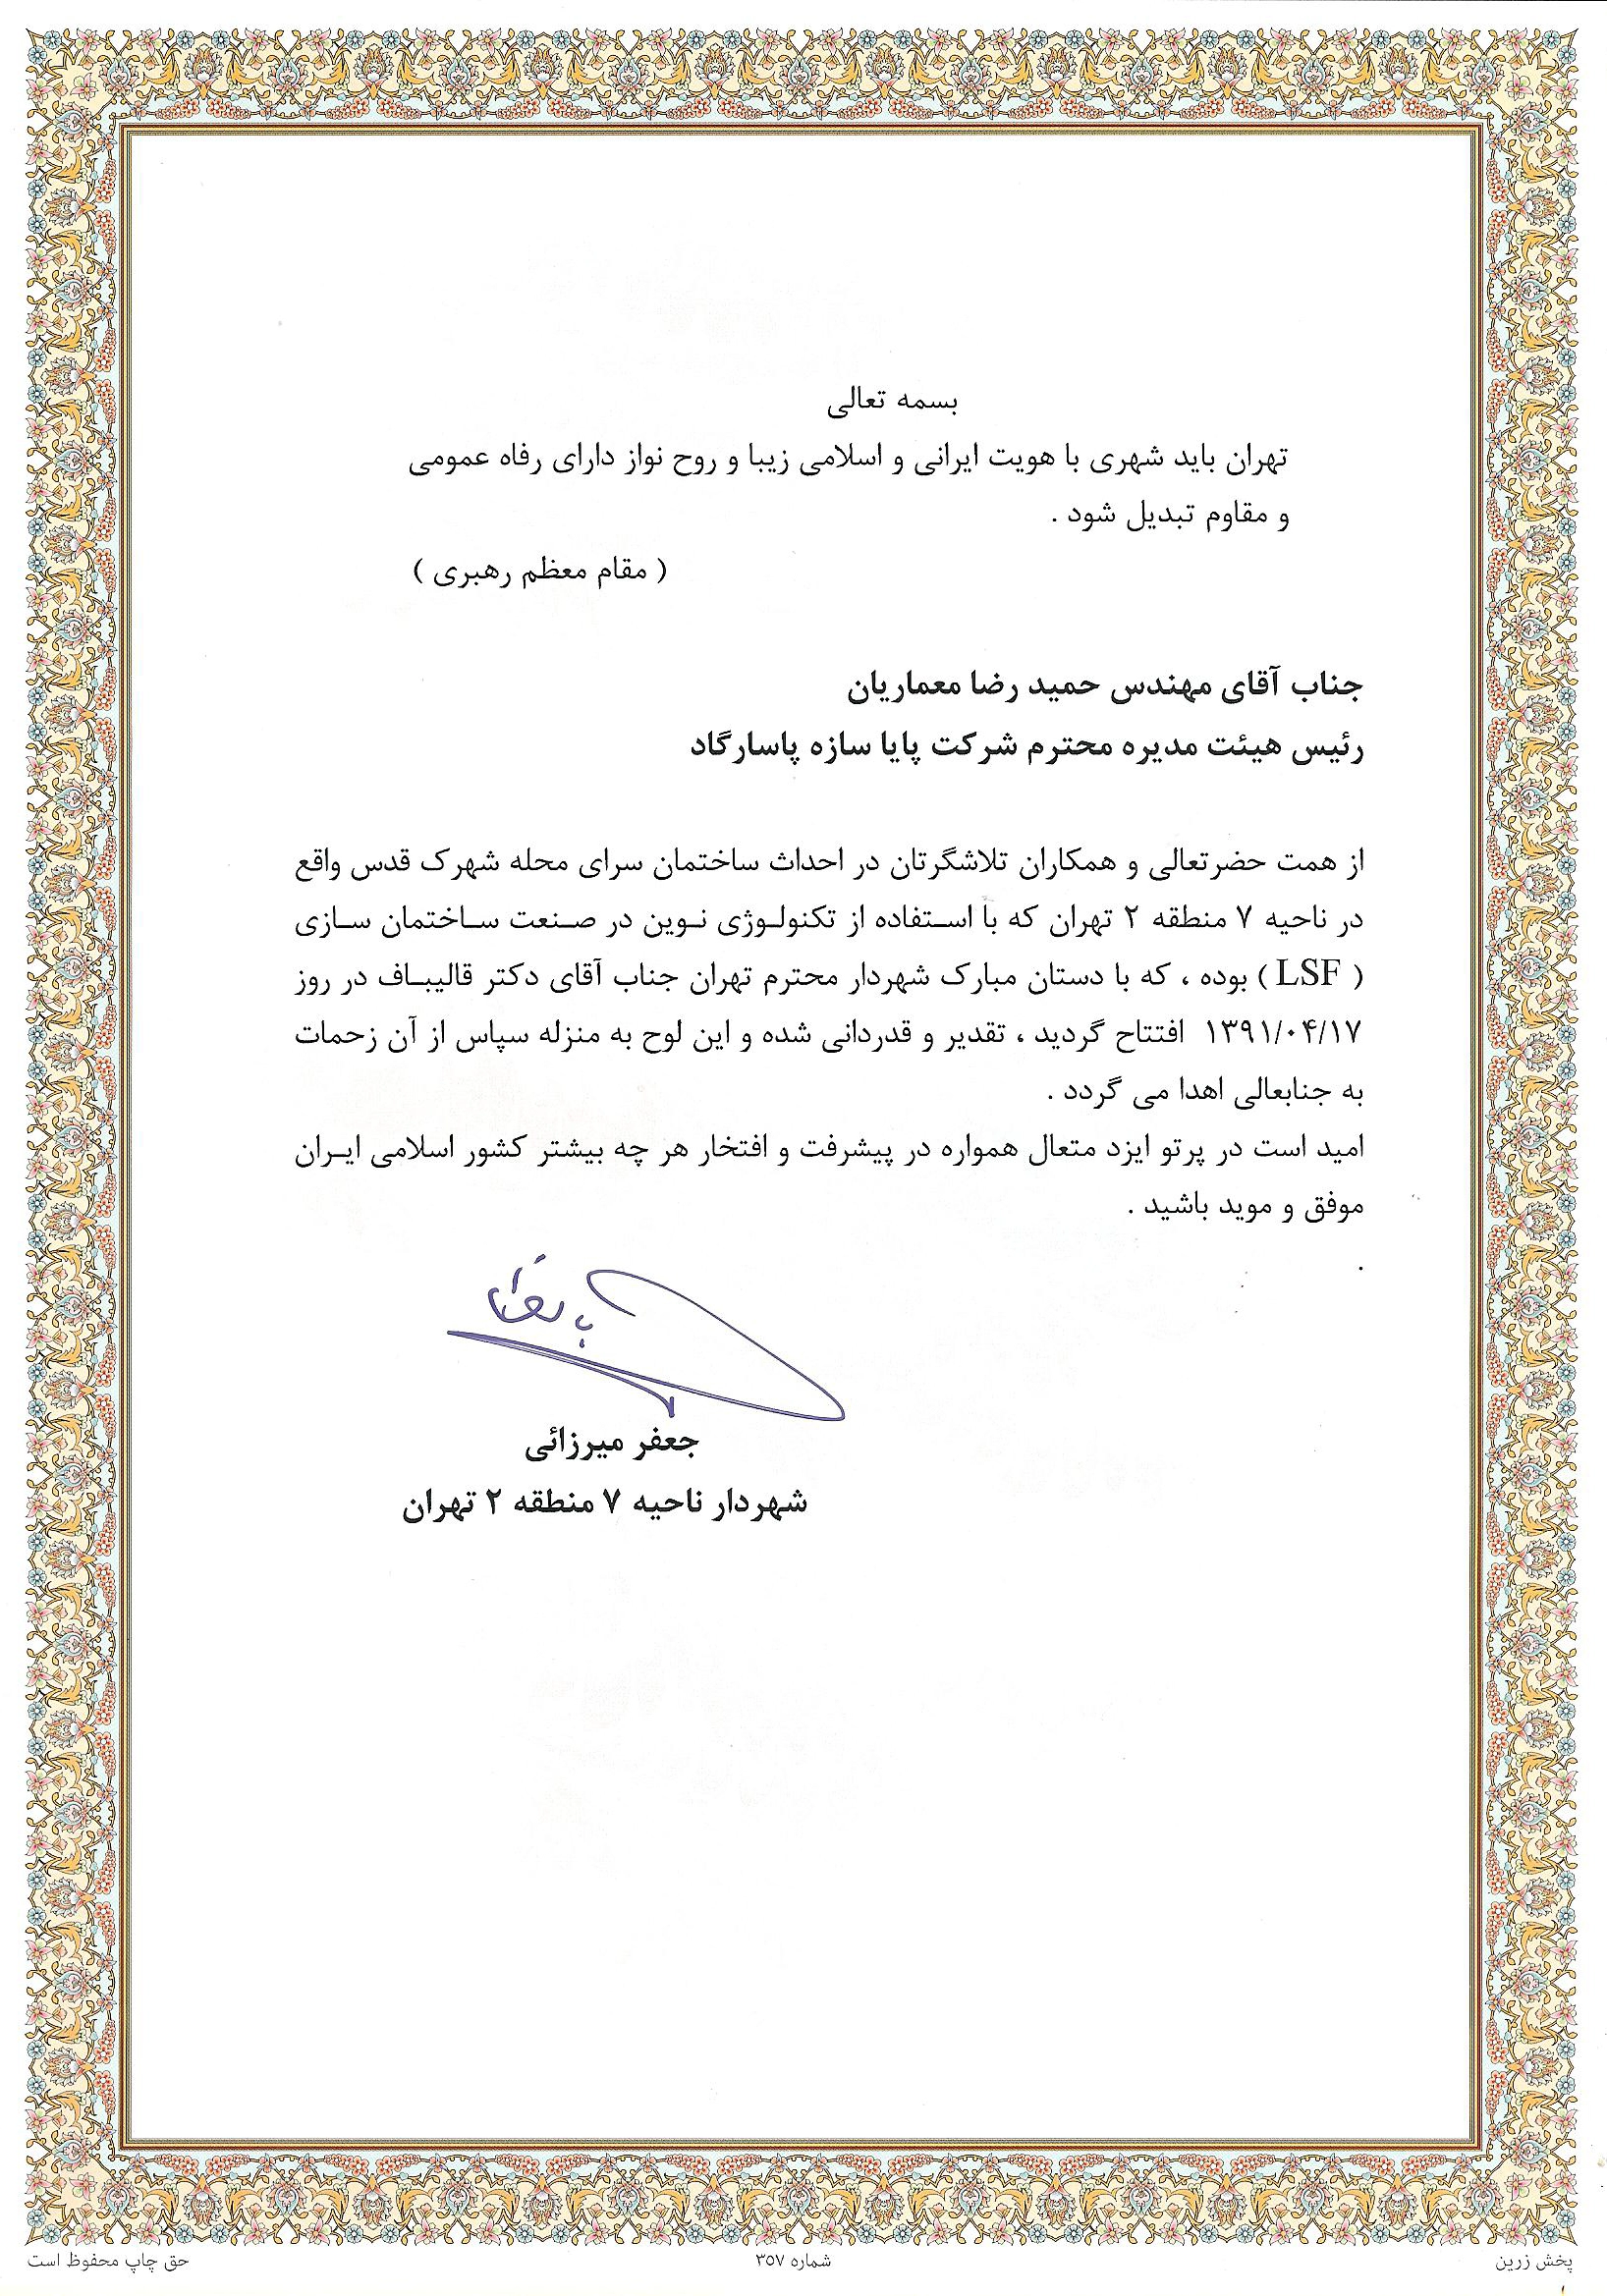 بسمه تعالی
تهران باید شهری با هویت ایرانی و اسلامی زیبا و روح نواز دارای رفاه عمومی
و مقاوم تبدیل شود .
( مقام معظم رهبری )
جناب آقای مهندس حمید رضا معماریان
رئیس هیئت مدیره محترم شرکت پایا سازه پاسارگاد
از همت حضرتعالی و همکاران تلاشگرتان در احداث ساختمان سرای محله شهرک قدس واقع
در ناحیه ۷ منطقه ۲ تهران که با استفاده از تکنولوژی نوین در صنعت ساختمان سازی
( LSF ) بوده ، که با دستان مبارک شهردار محترم تهران جناب آقای دکتر قالیباف در روز
۱۳۹۱/۰۴/۱۷ افتتاح گردید ، تقدیر و قدردانی شده و این لوح به منزله سپاس از آن زحمات
به جنابعالی اهدا می گردد .
امید است در پرتو ایزد متعال همواره در پیشرفت و افتخار هر چه بیشتر کشور اسلامی ایران
موفق و موید باشید .
.
جعفر میرزائی
شهردار ناحیه ۷ منطقه ۲ تهران
پخش زرین
شماره ۳۵۷
حق چاپ محفوظ است